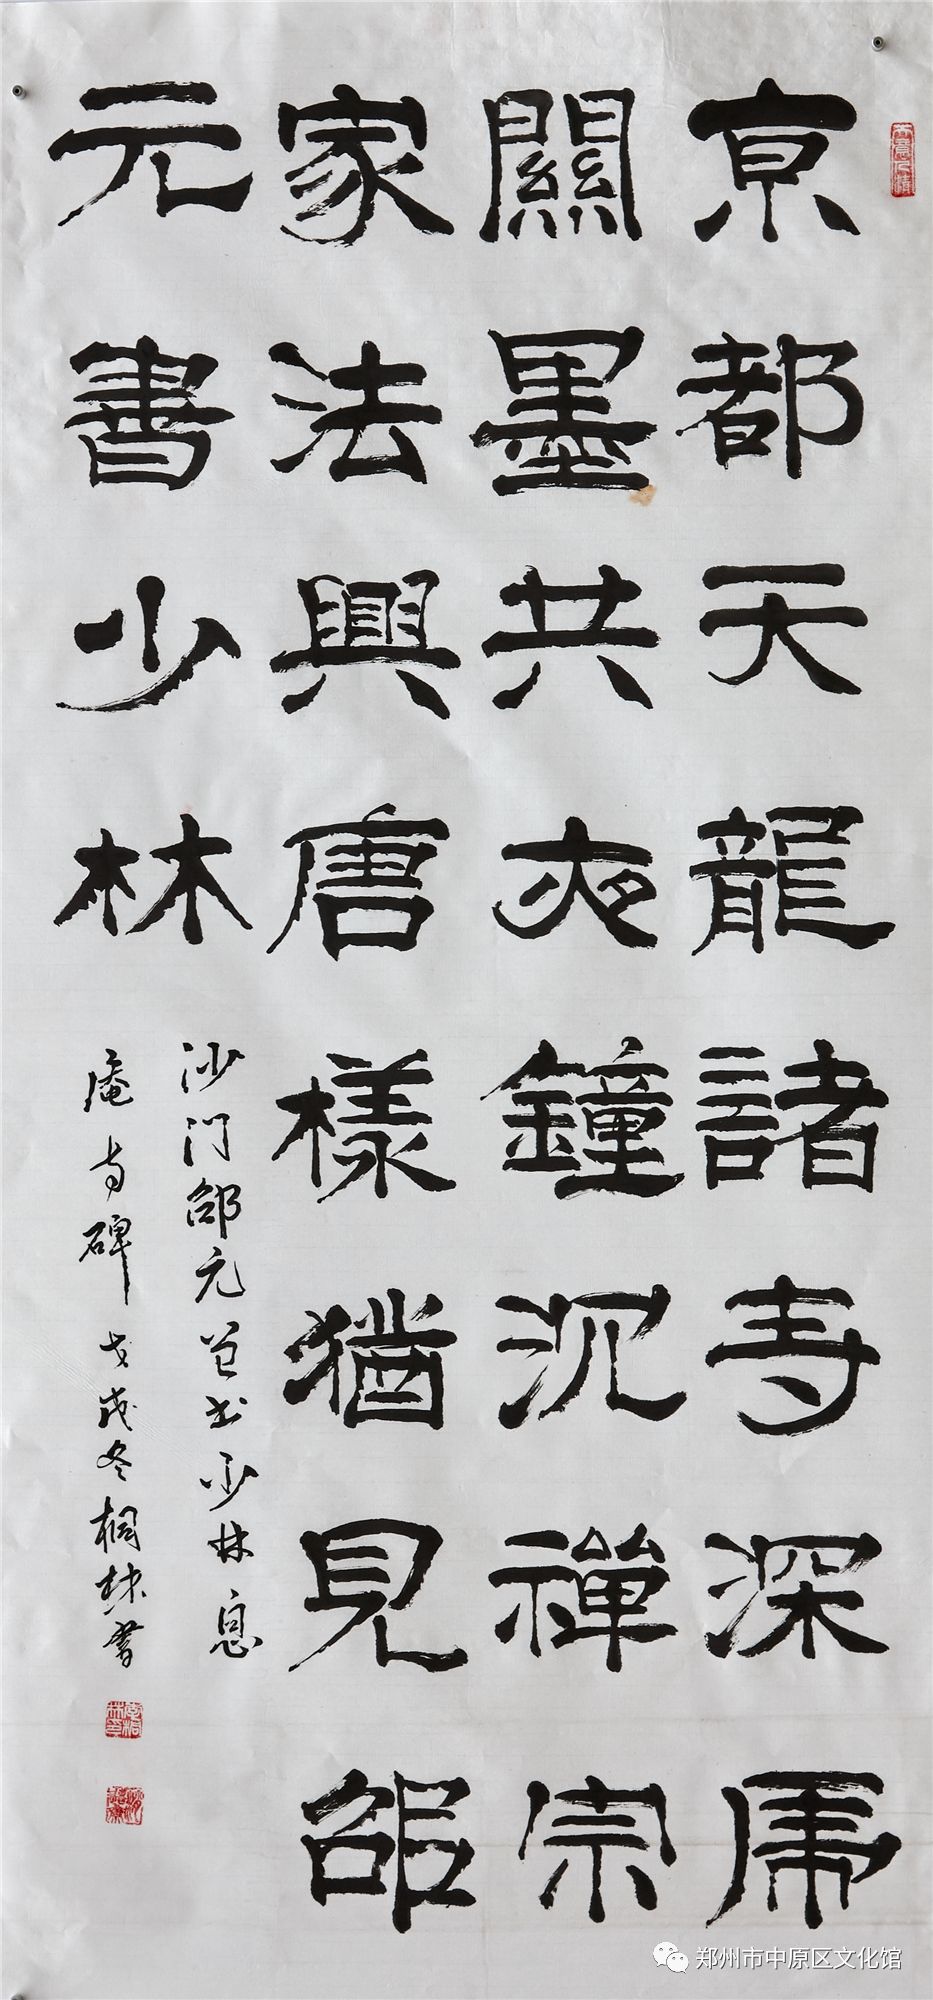 京都天龍諸寺深處
關墨共夜鐘沉禪宗
家法興唐様猶見邵
元書少林
沙门邵元曾书少林息
庵寺碑 戊戌冬桐林書
郑州市中原区文化馆